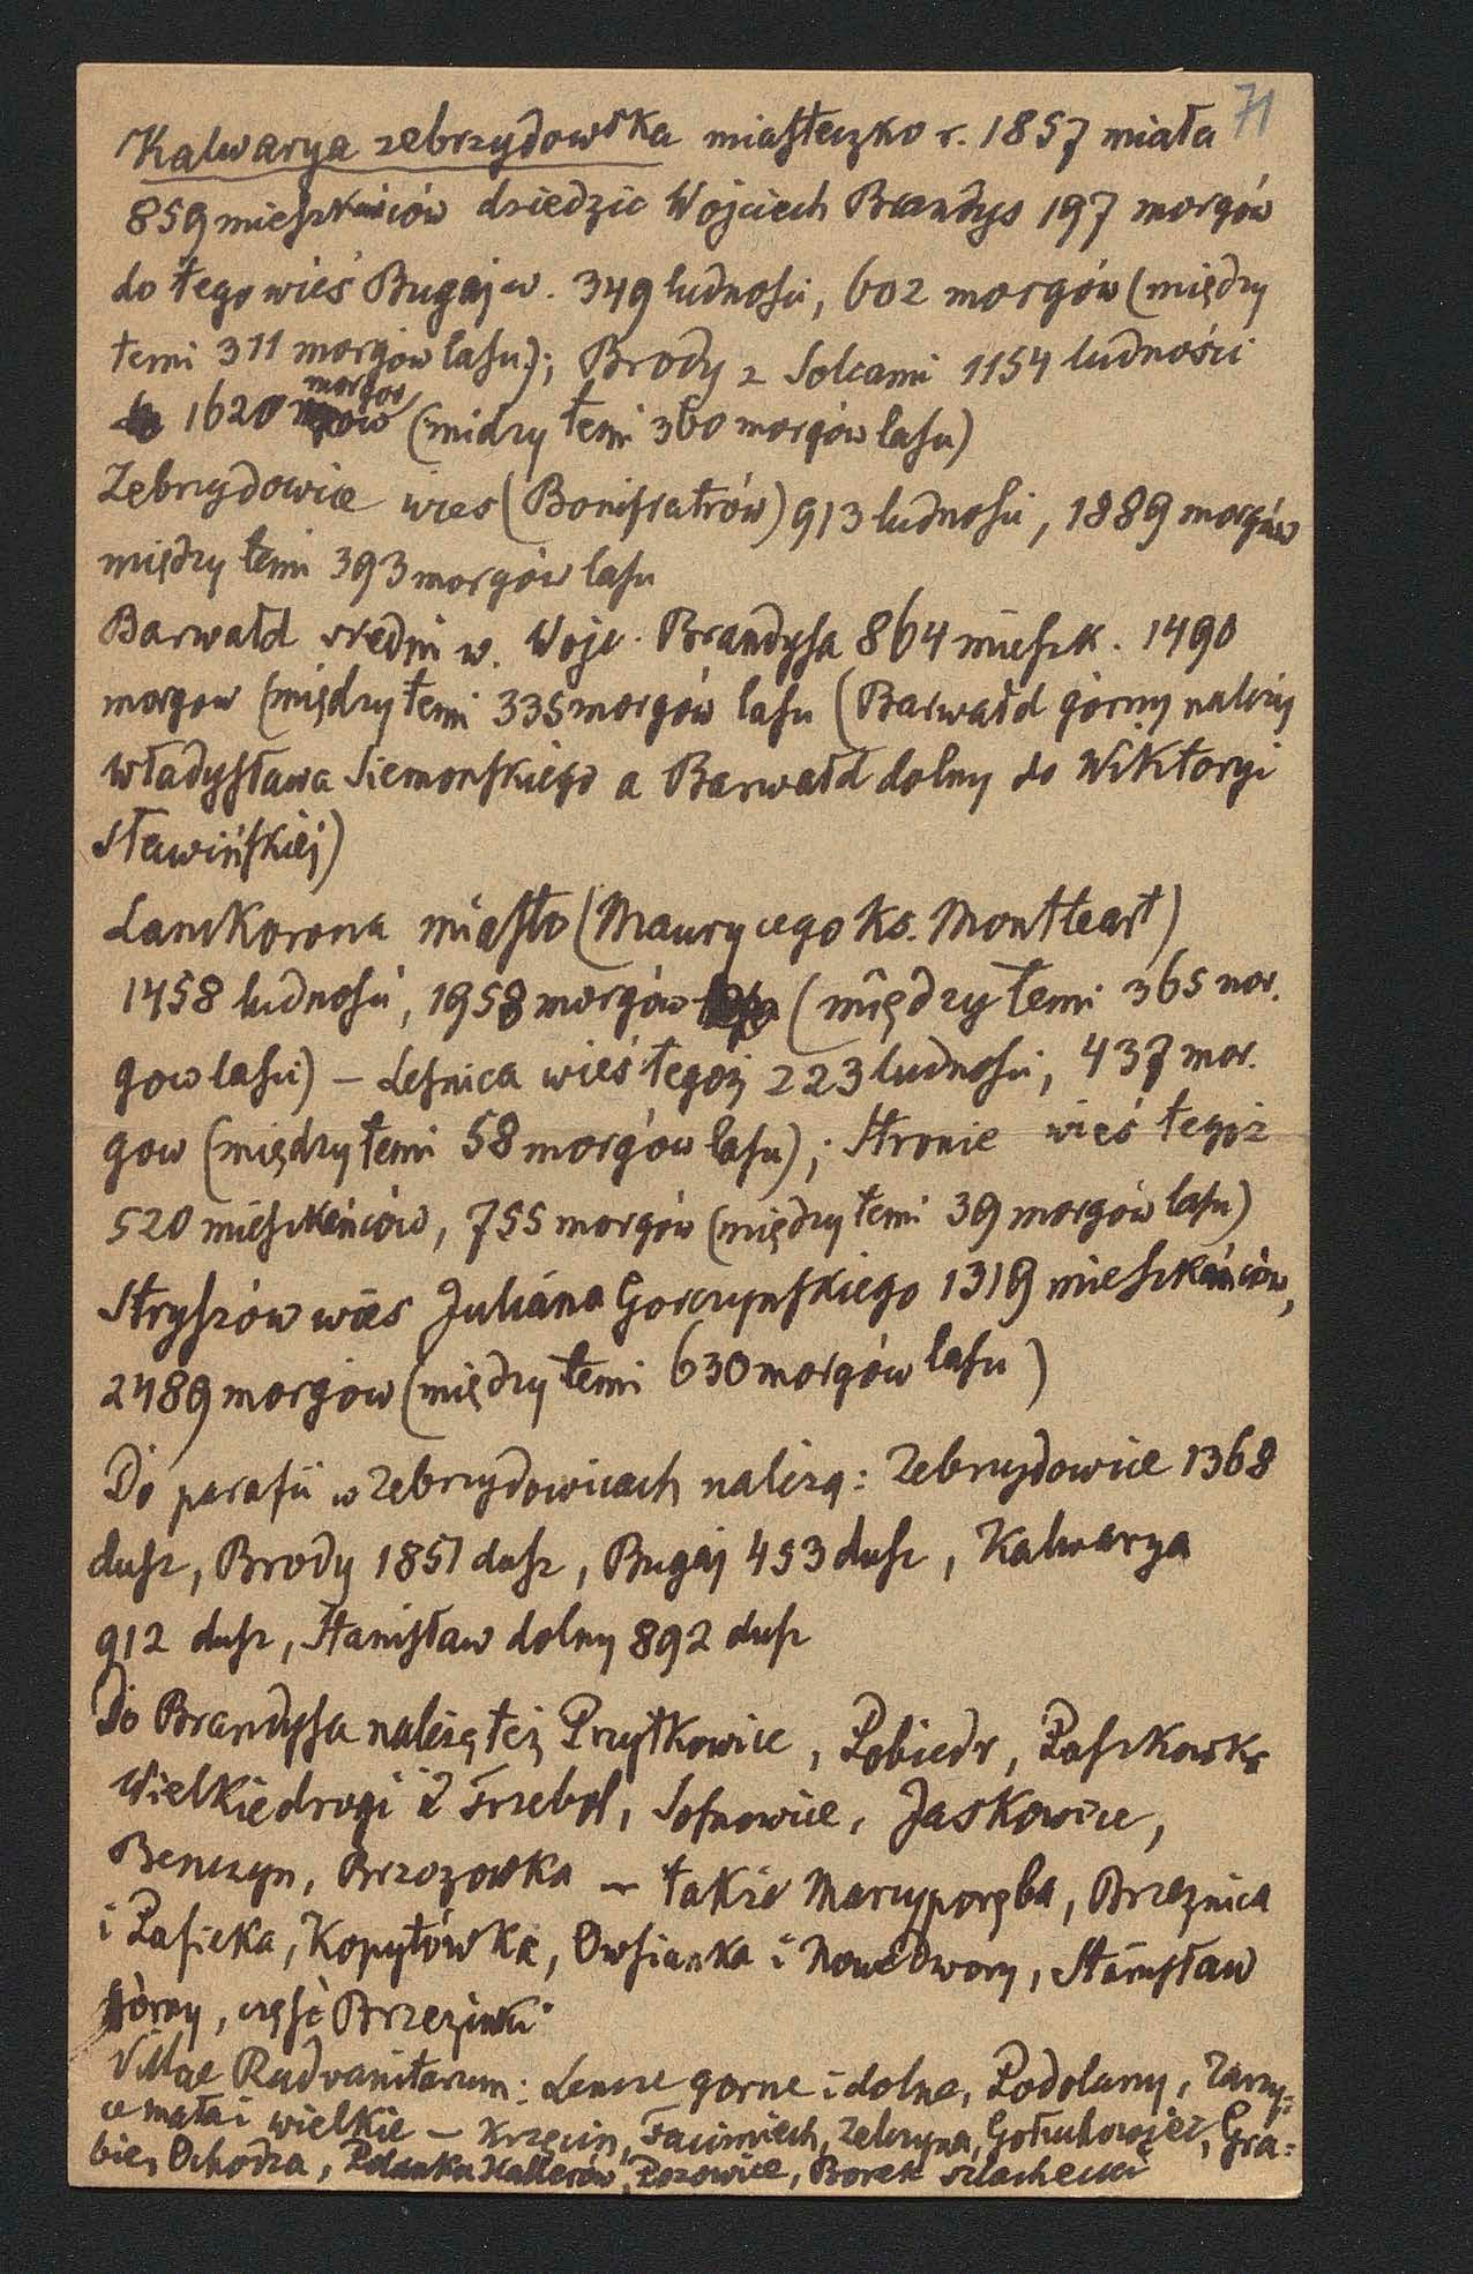 71
Kalwarya zebrzydowska miasteczko r. 1857 miała
859 mieszkańców dziedzic Wojciech Brandys 197 morgów
do tego wieś Bugaj w. 349 ludności, 602 morgów (między
temi 311 morgów lasu); Brody z Solcami 1154 ludności
1620 morgow (midzy temi 360 morgów lasu)
Zebrzydowice wies (Bonifratrów) 913 ludności, 1889 morgów
między temi 393 morgów lasu
Barwałd sredni w. Wojc. Brandysa 864 mieszk. 1490
morgow (między temi 335 morgów lasu (Barwałd górny należy
Władysława Siemonskiego a Barwałd dolny do Wiktoryi
Sławińskiéj)
Lanckorona miasto (Maurycego ks. Montleart)
1458 ludności, 1958 morgów (między temi 365 mor.
gow lasu) – Lesnica wieś tegoż 223 ludności, 437 mor.
gow (między temi 58 morgów lasu); Stronie wieś tegoż
520 mieszkańców, 755 morgów (między temi 39 morgów lasu)
Stryszów wies Juliana Gorczynskiego 1319 mieszkańców,
2489 morgów (między temi 630 morgów lasu)
Do parafii w Zebrzydowicach należą: Zebrzydowice 1368
dusz, Brody 1851 dusz, Bugaj 453 dusz, Kalwarya
912 dusz, Stanisław dolny 892 dusz
Do Brandysa należą też Przytkowice, Pobiedr, Paszkowka
Wielkiedrogi i Trzebol, Sosnowice, Jaskowice,
Benczyn, Brzozowka – także Marcyporęba, Brzeznica
i Pasieka, Kopytówka, Owsianka i Nowedwory, Stanisław
górny, część Brzezinki
Villae Radvanitarum: Lencze gorne i dolne, Podolany, Zarzy=
ce małe i wielkie – Krzęcin, Facimiech, Zelczyna, Gołuchowice, Gra=
bie, Ochodza, Polanka Hallerów, Pozowice, Borek szlachecki